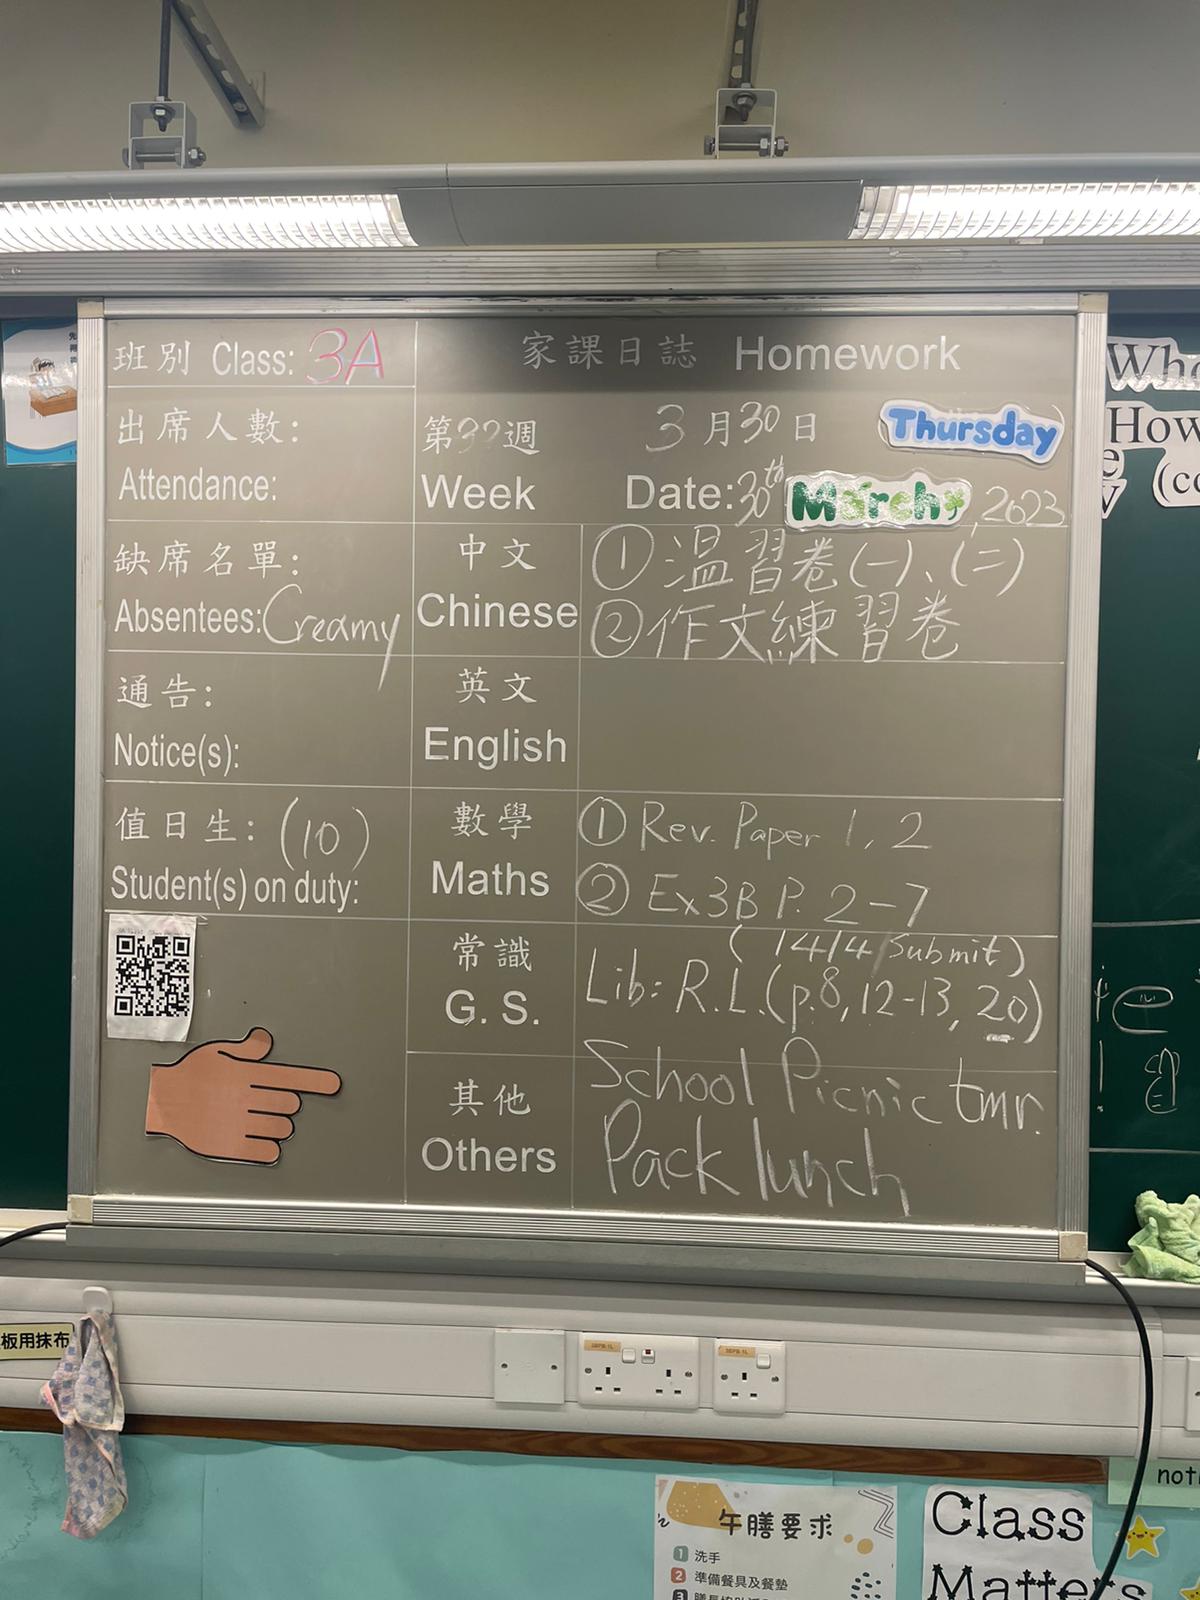 班別 Class: 3A
家課日誌 Homework
出席人數:
Attendance:
第32週 3月30日 Thursday
Week Date: 30th March, 2023
缺席名單:
Absentees: Creamy
中文
Chinese
① 温習卷(一)、(二)
② 作文練習卷
通告:
Notice(s):
英文
English
值日生: (10)
Student(s) on duty:
數學
Maths
① Rev. Paper 1, 2
② Ex3B P. 2-7
常識
G. S.
(14/4 submit)
Lib: R.L. (p.8, 12-13, 20)
其他
Others
School Picnic tmr.
Pack lunch
How
(co
板用抹布
午膳要求
1 洗手
2 準備餐具及餐墊
3
Class
Matters